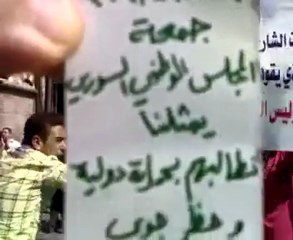 جمعة
المجلس الوطني السوري
يمثلنا
نطالبهم بحماية دولية
و حظر جوي
الشار
يقو
ليس ال